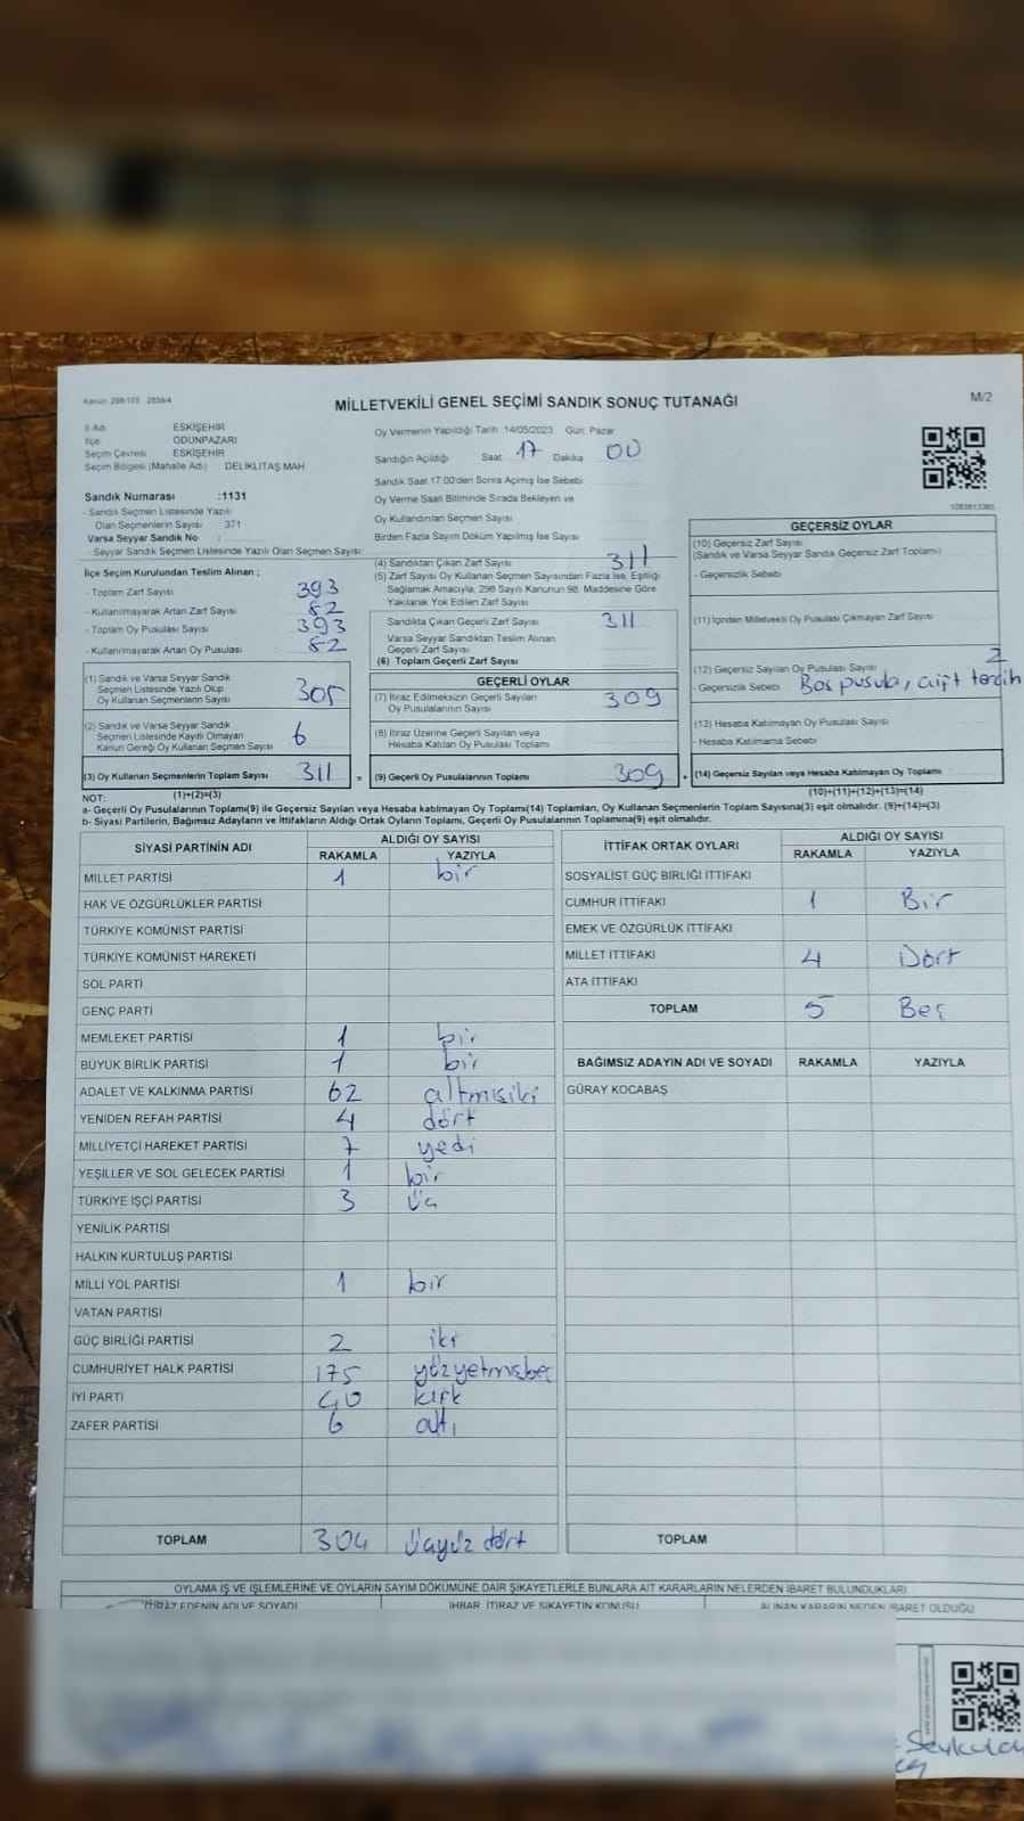 MİLLETVEKİLİ GENEL SEÇİMİ SANDIK SONUÇ TUTANAĞI
M/2
İl Adı ESKİŞEHİR
İlçe ODUNPAZARI
Seçim Çevresi ESKİŞEHİR
Seçim Bölgesi (Mahalle Adı) DELİKLİTAŞ MAH
Sandık Numarası :1131
- Sandık Seçmen Listesinde Yazılı
Olan Seçmenlerin Sayısı 371
Varsa Seyyar Sandık No :
- Seyyar Sandık Seçmen Listesinde Yazılı Olan Seçmen Sayısı:
İlçe Seçim Kurulundan Teslim Alınan ;
- Toplam Zarf Sayısı 393
- Kullanılmayarak Artan Zarf Sayısı 82
- Toplam Oy Pusulası Sayısı 393
- Kullanılmayarak Artan Oy Pusulası 82
(1) Sandık ve Varsa Seyyar Sandık
Seçmen Listesinde Yazılı Olup
Oy Kullanan Seçmenlerin Sayısı 305
(2) Sandık ve Varsa Seyyar Sandık
Seçmen Listesinde Kayıtlı Olmayan
Kanun Gereği Oy Kullanan Seçmen Sayısı 6
(3) Oy Kullanan Seçmenlerin Toplam Sayısı 311 =
(1)+(2)=(3)
Oy Vermenin Yapıldığı Tarih: 14/05/2023 Gün: Pazar
Sandığın Açıldığı Saat 17 Dakika 00
Sandık Saat 17:00'den Sonra Açılmış İse Sebebi
Oy Verme Saati Bitiminde Sırada Bekleyen ve
Oy Kullandırılan Seçmen Sayısı
Birden Fazla Sayım Döküm Yapılmış İse Sayısı
(4) Sandıktan Çıkan Zarf Sayısı 311
(5) Zarf Sayısı Oy Kullanan Seçmen Sayısından Fazla İse, Eşitliği
Sağlamak Amacıyla, 298 Sayılı Kanunun 98. Maddesine Göre
Yakılarak Yok Edilen Zarf Sayısı
Sandıkta Çıkan Geçerli Zarf Sayısı 311
Varsa Seyyar Sandıktan Teslim Alınan
Geçerli Zarf Sayısı
(6) Toplam Geçerli Zarf Sayısı
GEÇERLİ OYLAR
(7) İtiraz Edilmeksizin Geçerli Sayılan
Oy Pusulalarının Sayısı 309
(8) İtiraz Üzerine Geçerli Sayılan veya
Hesaba Katılan Oy Pusulası Toplamı
(9) Geçerli Oy Pusulalarının Toplamı 309 +
GEÇERSİZ OYLAR
(10) Geçersiz Zarf Sayısı
(Sandık ve Varsa Seyyar Sandık Geçersiz Zarf Toplamı)
- Geçersizlik Sebebi
(11) İçinden Milletvekili Oy Pusulası Çıkmayan Zarf Sayısı
(12) Geçersiz Sayılan Oy Pusulası Sayısı 2
- Geçersizlik Sebebi Boş pusula, çift tercih
(13) Hesaba Katılmayan Oy Pusulası Sayısı
- Hesaba Katılmama Sebebi
(14) Geçersiz Sayılan veya Hesaba Katılmayan Oy Toplamı
(10)+(11)+(12)+(13)=(14)
NOT:
a- Geçerli Oy Pusulalarının Toplamı(9) ile Geçersiz Sayılan veya Hesaba katılmayan Oy Toplamı(14) Toplamları, Oy Kullanan Seçmenlerin Toplam Sayısına(3) eşit olmalıdır. (9)+(14)=(3)
b- Siyasi Partilerin, Bağımsız Adayların ve İttifakların Aldığı Ortak Oyların Toplamı, Geçerli Oy Pusulalarının Toplamına(9) eşit olmalıdır.
SİYASİ PARTİNİN ADI ALDIĞI OY SAYISI
RAKAMLA YAZIYLA
MİLLET PARTİSİ 1 bir
HAK VE ÖZGÜRLÜKLER PARTİSİ
TÜRKİYE KOMÜNİST PARTİSİ
TÜRKİYE KOMÜNİST HAREKETİ
SOL PARTİ
GENÇ PARTİ
MEMLEKET PARTİSİ 1 bir
BÜYÜK BİRLİK PARTİSİ 1 bir
ADALET VE KALKINMA PARTİSİ 62 altmışiki
YENİDEN REFAH PARTİSİ 4 dört
MİLLİYETÇİ HAREKET PARTİSİ 7 yedi
YEŞİLLER VE SOL GELECEK PARTİSİ 1 bir
TÜRKİYE İŞÇİ PARTİSİ 3 üç
YENİLİK PARTİSİ
HALKIN KURTULUŞ PARTİSİ
MİLLİ YOL PARTİSİ 1 bir
VATAN PARTİSİ
GÜÇ BİRLİĞİ PARTİSİ 2 iki
CUMHURİYET HALK PARTİSİ 175 yüzyetmişbeş
İYİ PARTİ 40 kırk
ZAFER PARTİSİ 6 altı
TOPLAM 304 üçyüz dört
İTTİFAK ORTAK OYLARI ALDIĞI OY SAYISI
RAKAMLA YAZIYLA
SOSYALİST GÜÇ BİRLİĞİ İTTİFAKI
CUMHUR İTTİFAKI 1 Bir
EMEK VE ÖZGÜRLÜK İTTİFAKI
MİLLET İTTİFAKI 4 Dört
ATA İTTİFAKI
TOPLAM 5 Beş
BAĞIMSIZ ADAYIN ADI VE SOYADI RAKAMLA YAZIYLA
GÜRAY KOCABAŞ
TOPLAM
OYLAMA İŞ VE İŞLEMLERİNE VE OYLARIN SAYIM DÖKÜMÜNE DAİR ŞİKAYETLERLE BUNLARA AİT KARARLARIN NELERDEN İBARET BULUNDUKLARI
İTİRAZ EDENİN ADI VE SOYADI İHBAR, İTİRAZ VE ŞİKAYETİN KONUSU ALINAN KARARIN NEDEN İBARET OLDUĞU